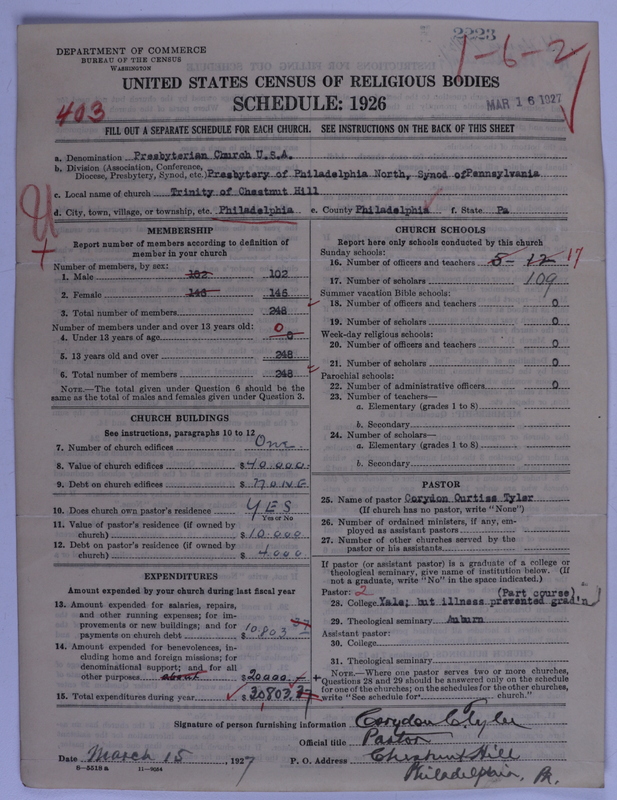 2223
1-6-2
DEPARTMENT OF COMMERCE
BUREAU OF THE CENSUS
WASHINGTON
UNITED STATES CENSUS OF RELIGIOUS BODIES
SCHEDULE: 1926
403
MAR 16 1927
FILL OUT A SEPARATE SCHEDULE FOR EACH CHURCH. SEE INSTRUCTIONS ON THE BACK OF THIS SHEET
a. Denomination Presbyterian Church U.S.A.
b. Division (Association, Conference,
Diocese, Presbytery, Synod, etc.) Presbytery of Philadelphia North, Synod ofPennsylvania
c. Local name of church Trinity of Chestnut Hill
d. City, town, village, or township, etc. Philadelphia e. County Philadelphia f. State Pa
U
+
MEMBERSHIP
Report number of members according to definition of
member in your church
Number of members, by sex:
1. Male 102 102
2. Female 146 146
3. Total number of members 248
Number of members under and over 13 years old: 0
4. Under 13 years of age 0
5. 13 years old and over 248
6. Total number of members 248
NOTE.—The total given under Question 6 should be the
same as the total of males and females given under Question 3.
CHURCH BUILDINGS
See instructions, paragraphs 10 to 12
7. Number of church edifices One
8. Value of church edifices $40.000.
9. Debt on church edifices $ NONE
10. Does church own pastor's residence YES
Yes or No
11. Value of pastor's residence (if owned by
church) $10.000
12. Debt on pastor's residence (if owned by
church) $ 4.000
EXPENDITURES
Amount expended by your church during last fiscal year
13. Amount expended for salaries, repairs,
and other running expenses; for im-
provements or new buildings; and for
payments on church debt $ 10.803 37
14. Amount expended for benevolences, in-
cluding home and foreign missions; for
denominational support; and for all
other purposes about $20000.
15. Total expenditures during year $30803.37
CHURCH SCHOOLS
Report here only schools conducted by this church
Sunday schools:
16. Number of officers and teachers 5- 12 17
17. Number of scholars 109
Summer vacation Bible schools:
18. Number of officers and teachers 0
19. Number of scholars 0
Week-day religious schools:
20. Number of officers and teachers 0
21. Number of scholars 0
Parochial schools:
22. Number of administrative officers 0
23. Number of teachers—
a. Elementary (grades 1 to 8)
b. Secondary
24. Number of scholars—
a. Elementary (grades 1 to 8)
b. Secondary
PASTOR
25. Name of pastor Corydon Curtiss Tyler
(If church has no pastor, write "None")
26. Number of ordained ministers, if any, em-
ployed as assistant pastors
27. Number of other churches served by the
pastor or his assistants
If pastor (or assistant pastor) is a graduate of a college or
theological seminary, give name of institution below. (If
not a graduate, write "No" in the space indicated.)
Pastor: 2 (Part course)
28. College Yale; but illness prevented grad'n
29. Theological seminary Auburn
Assistant pastor:
30. College
31. Theological seminary
NOTE.—Where one pastor serves two or more churches,
Questions 28 and 29 should be answered only on the schedule
for one of the churches; on the schedules for the other churches,
write "See schedule for church."
Signature of person furnishing information Corydon C. Tyler
Official title Pastor
Date March 15, 1927 P. O. Address Chestnut Hill
8—5518 a 11—9034 Philadelphia, Pa.